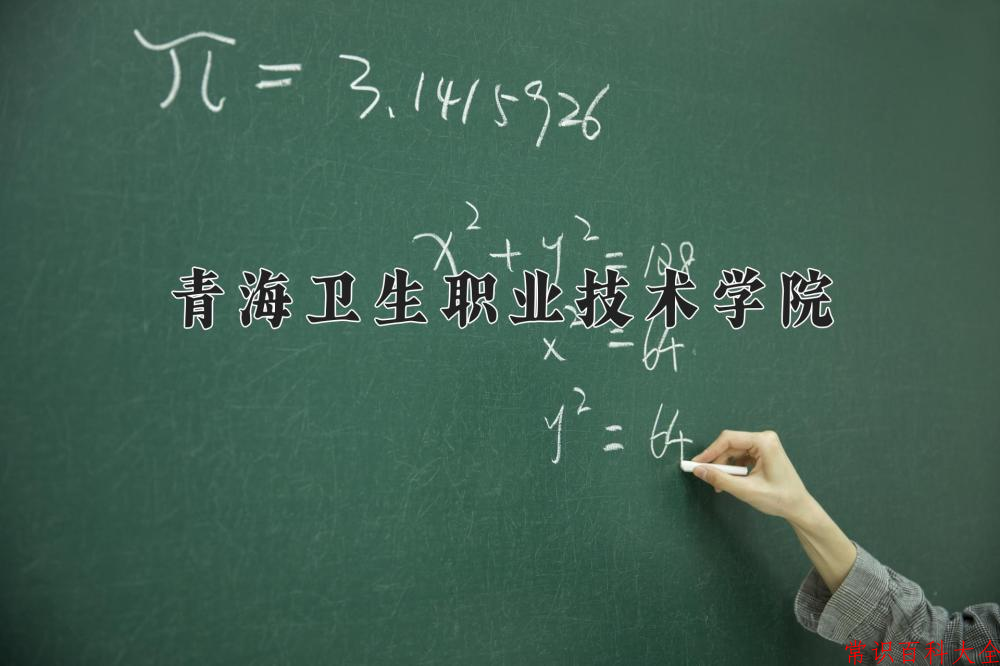 π = 3.1415926
x² + y² = 128
青海卫生职业技术学院
x² = 64
y² = 64
常识百科大全